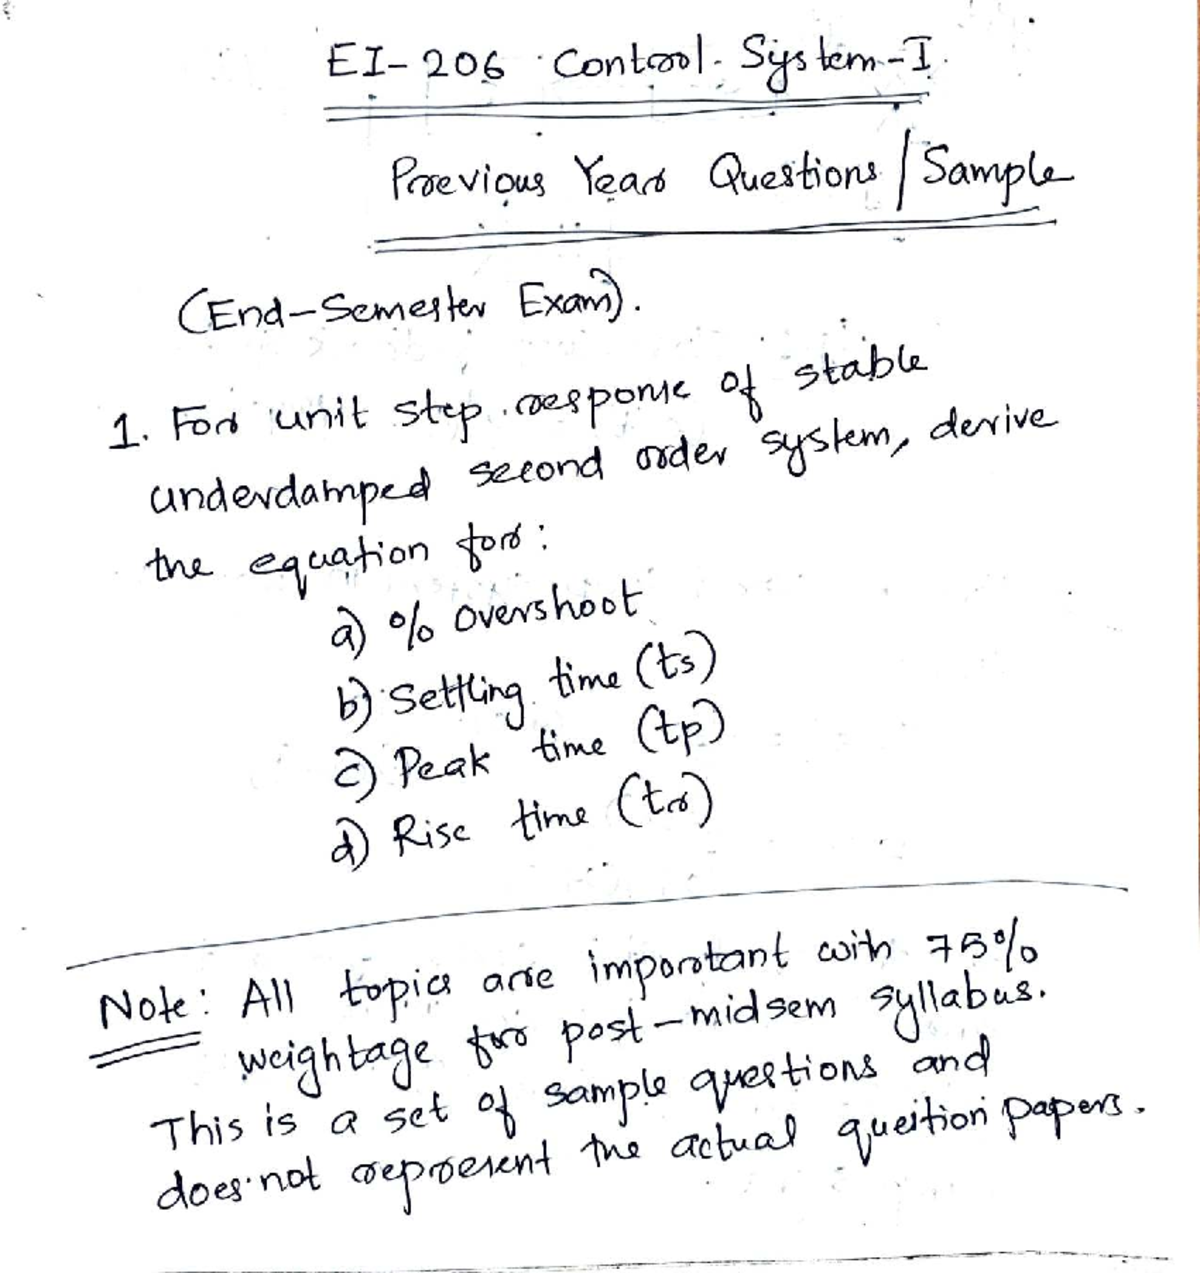 EI-206 Control System-I
Previous Year Questions / Sample
(End-Semester Exam).
1. For unit step response of stable
underdamped second order system, derive
the equation for:
a) % overshoot
b) Settling time (ts)
c) Peak time (tp)
d) Rise time (tr)
Note: All topics are important with 75%
weightage for post-midsem syllabus.
This is a set of sample questions and
does not represent the actual question papers.